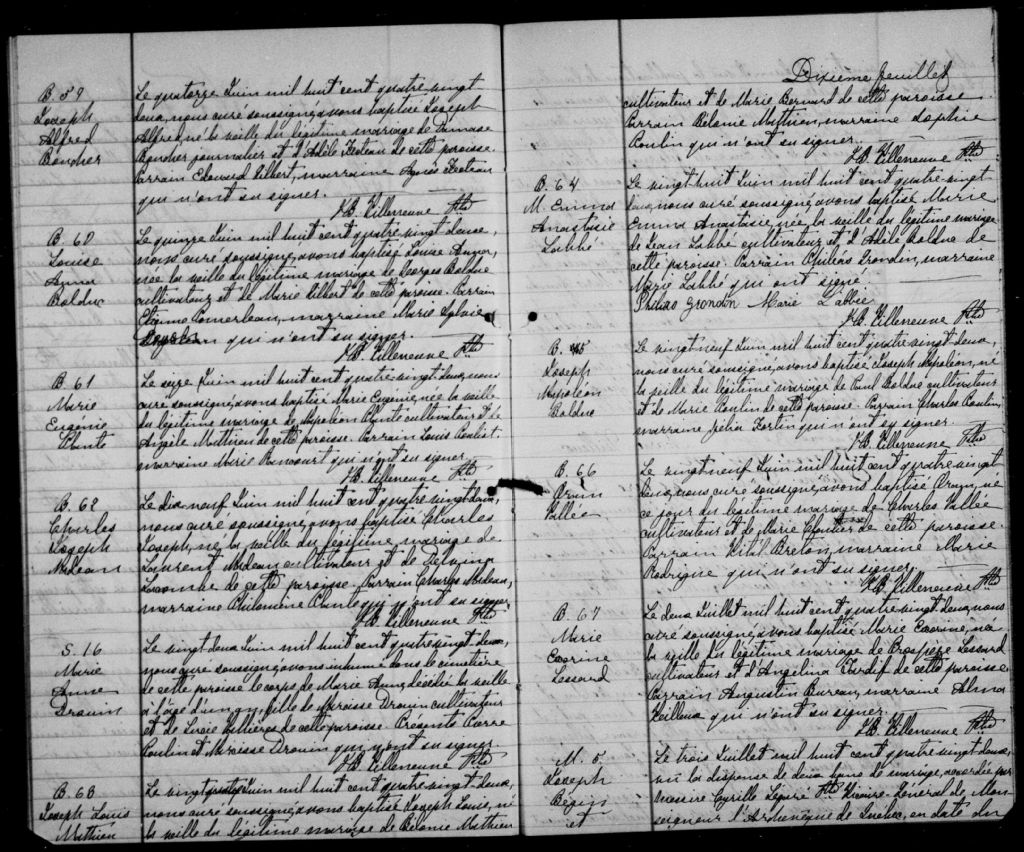 B. 59
Joseph
Alfred
Boucher
Le quatorze Juin mil huit cent quatre-vingt
deux, nous curé soussigné, avons baptisé Joseph
Alfred, né la veille du légitime mariage de Damase
Boucher journalier et d'Adèle Fecteau de cette paroisse.
Parrain Edouard Gilbert, marraine Agnès Fecteau
qui n'ont su signer.
J.B. Villeneuve Ptre
B. 60
Louise
Anna
Bolduc
Le quinze Juin mil huit cent quatre vingt deux,
nous curé soussigné, avons baptisé Louise Anna,
née la veille du légitime mariage de Georges Bolduc
cultivateur et de Marie Gilbert de cette paroisse. Parrain
Etienne Pomerleau, marraine Marie Sylvie
qui n'ont su signer.
J.B. Villeneuve Ptre
B. 61
Marie
Eugénie
Plante
Le seize Juin mil huit cent quatre-vingt-deux, nous
curé soussigné, avons baptisé Marie Eugénie, née la veille
du légitime mariage de Napoléon Plante cultivateur et d'
Angèle Mathieu de cette paroisse. Parrain Louis Pouliot,
marraine Marie Rancourt qui n'ont su signer.
J.B. Villeneuve Ptre
B. 62
Charles
Joseph
Nadeau
Le dix-neuf Juin mil huit cent quatre vingt-deux,
nous curé soussigné, avons baptisé Charles
Joseph, né la veille du légitime mariage de
Laurent Nadeau cultivateur et de Delvina
Lacombe de cette paroisse. Parrain Charles Nadeau,
marraine Philomène qui n'ont su signer.
J.B. Villeneuve Ptre
S. 16
Marie
Anne
Drouin
Le vingt deux Juin mil huit cent quatre vingt-deux,
nous curé soussigné, avons inhumé dans le cimetière
de cette paroisse le corps de Marie Anne, décédée la veille
à l'âge d'un an, fille de Narcisse Drouin cultivateur
et de Vallières de cette paroisse. Présents Pierre
Poulin et Narcisse Drouin qui n'ont su signer.
J.B. Villeneuve Ptre
B. 63
Joseph Louis
Mathieu
Le vingt Juin mil huit cent quatre-vingt-deux,
nous curé soussigné, avons baptisé Joseph Louis, né
la veille du légitime mariage de Bélonie Mathieu
Dixième feuillet
cultivateur et de Marie Bernard de cette paroisse
Parrain Bélonie Mathieu, marraine Sophie
Poulin qui n'ont su signer.
J.B. Villeneuve Ptre
B. 64
M. Emma
Anastasie
Labbé
Le vingt-huit Juin mil huit cent quatre-vingt-
deux, nous curé soussigné, avons baptisé Marie
Emma Anastasie, née la veille du légitime mariage
de Jean Labbé cultivateur et d'Adèle Bolduc de
cette paroisse. Parrain Philéas Grondin, marraine
Marie Labbé qui ont signé.
Philéas Grondin Marie Labbé
J.B. Villeneuve Ptre
B. 65
Joseph
Napoléon
Bolduc
Le vingt-neuf Juin mil huit cent quatre-vingt-deux,
nous curé soussigné, avons baptisé Joseph Napoléon, né
la veille du légitime mariage de Paul Bolduc cultivateur
et de Marie Poulin de cette paroisse. Parrain Charles Poulin,
marraine Félix Fortin qui n'ont su signer.
J.B. Villeneuve Ptre
B. 66
Oram
Vallée
Le vingt-neuf Juin mil huit cent quatre-vingt
deux, nous curé soussigné, avons baptisé Oram, né
ce jour du légitime mariage de Charles Vallée
cultivateur et de Marie Cloutier de cette paroisse.
Parrain Vital Breton, marraine Marie
Rodrigue qui n'ont su signer.
J.B. Villeneuve Ptre
B. 67
Marie
Lessard
Le deux Juillet mil huit cent quatre-vingt-deux, nous
curé soussigné, avons baptisé Marie née
la veille du légitime mariage de Prospère Lessard
cultivateur et d'Angelina Tardif de cette paroisse.
Parrain Augustin Bureau, marraine Alma
Veilleux qui n'ont su signer.
J.B. Villeneuve Ptre
M. 5
Joseph
Bégin
et
Le trois Juillet mil huit cent quatre-vingt-deux,
vu la dispense de deux bans de mariage, accordée par
Messire Cyrille Légaré Ptre Vicaire-Général de Mon-
seigneur l'Archevêque de Québec, en date du